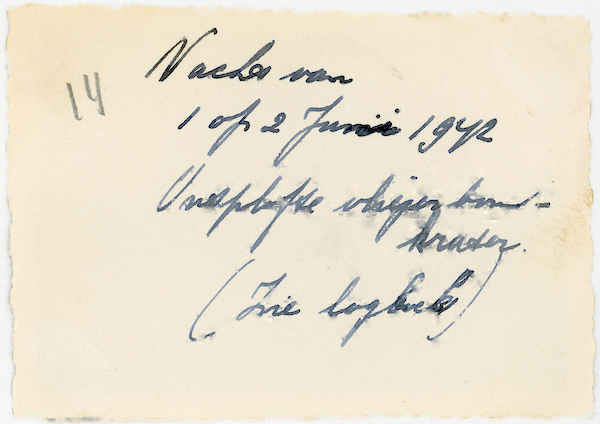 14
Nacht van
1 op 2 Juni 1942
Ontplofte vliegerbom-
krater.
(Zie logboek)